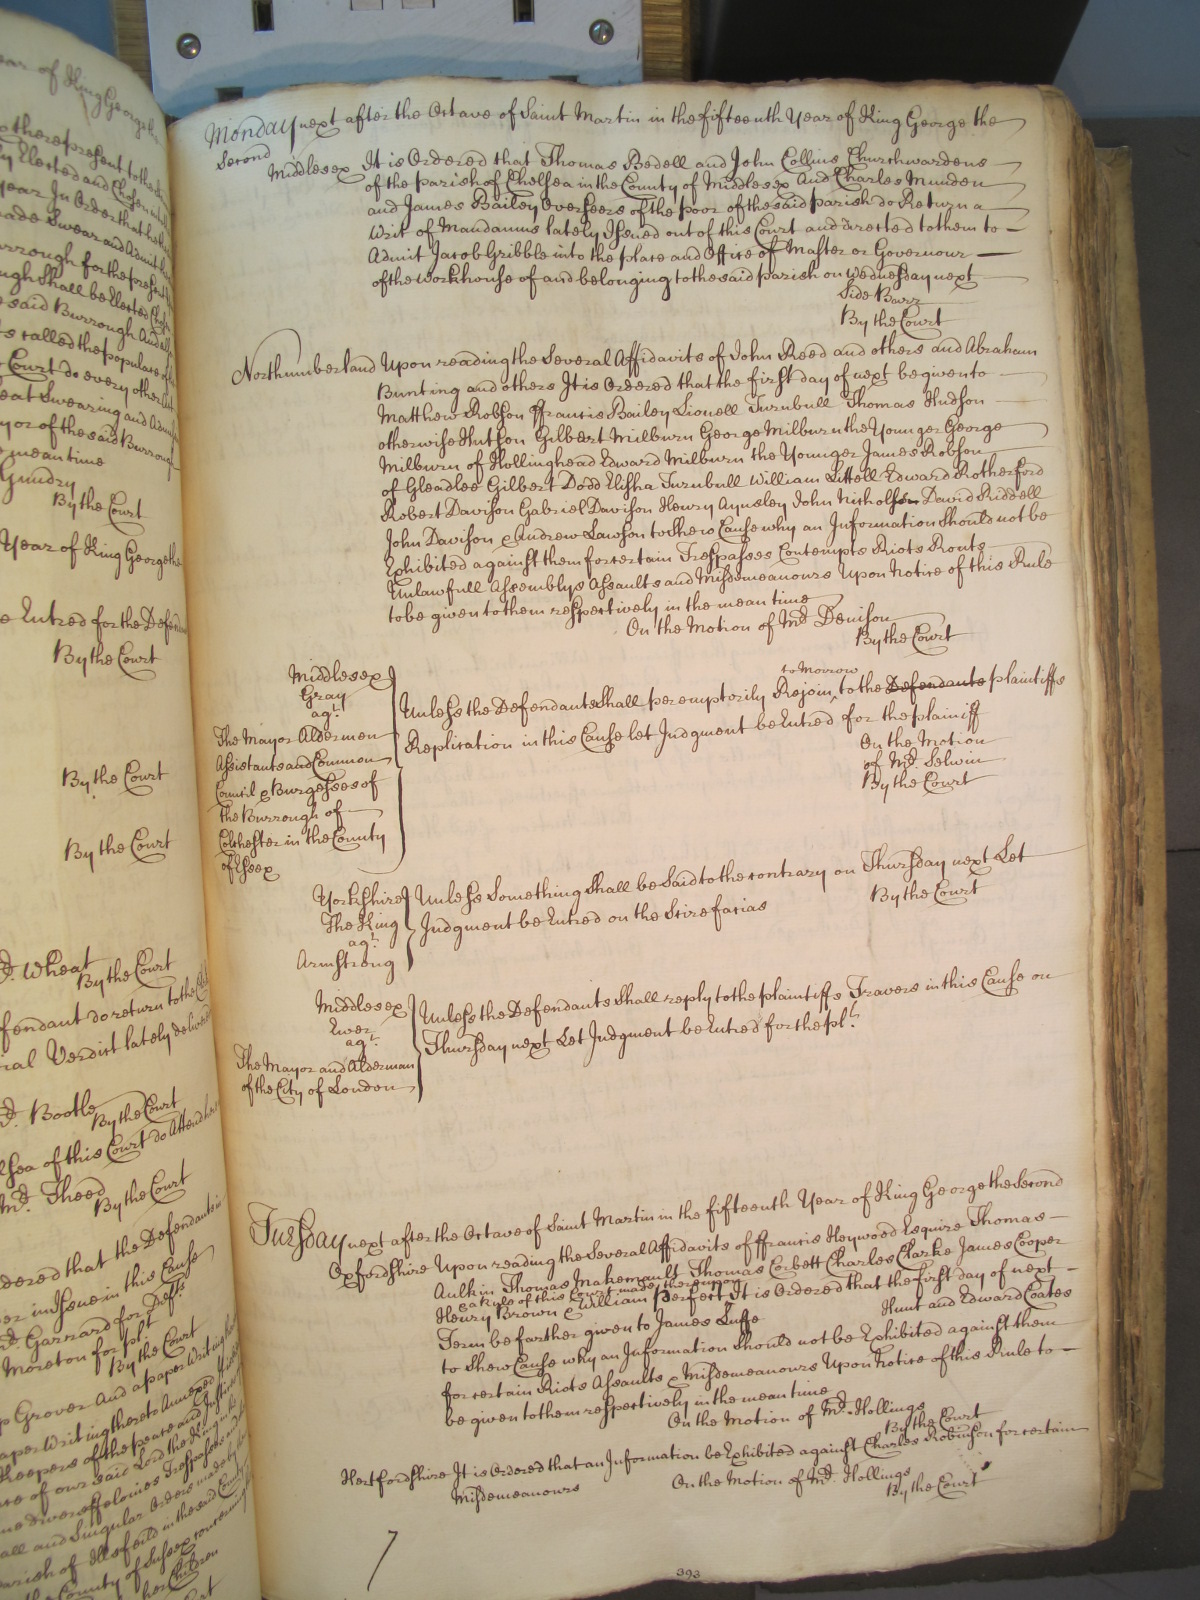 ear of King George
there present to the
y Elected and Chosen
year In Order that he
ade Swear and Admit
urrough for the present
ugh Shall be Elected Chosen
e said Burrough And
ts called the populare
Court do every other
eat Swearing and
yor of the said Burrough
meantime
Gundry
By the Court
Year of King George the
e Entred for the Defen
By the Court
By the Court
By the Court
Mr. Wheat
By the Court
fendant do return to the
ial Verdict lately delivered
Mr. Bootle
By the Court
lsea of this Court do Attend
Mr. Theed
By the Court
dered that the Defendants
er in Issue in this Cause
Mr. Garrard for Defts
Moreton for plt
By the Court
p Grover And a paper Writing
aper Writing thereto Annexed
Keepers of the peace and Justices
are of our said Lord the King
ne divers ffelonies Trespasses and
all and Singular Orders made by
parish of in the said County
the County of Sussex concerning
her Children
Monday next after the Octave of Saint Martin in the fifteenth Year of King George the
Second
Middlesex It is Ordered that Thomas Bedell and John Collins Churchwardens
of the parish of Chelsea in the County of Middlesex And Charles Munden
and James Bailey Overseers of the poor of the said parish do Return a
Writ of Mandamus lately Issued out of this Court and directed to them to
Admit Jacob Gribble into the place and Office of Master or Governour
of the Workhouse of and belonging to the said parish on Wednesday next
Side Barr
By the Court
Northumberland Upon reading the Several Affidavits of John Reed and others and Abraham
Bunting and others It is Ordered that the first day of next be given to
Matthew Robson ffrancis Bailey Lionell Turnbull Thomas Hudson
otherwise Hutson Gilbert Milburn George Milburn the Younger George
Milburn of Hollinghead Edward Milburn the Younger James Robson
of Gleadlee Gilbert Dodd Elisha Turnbull William Littell Edward Rotherford
Robert Davison Gabriel Davison Henry Aynsley John Nicholson David Riddell
John Davison & Andrew Lawson to Shew Cause why an Information Should not be
Exhibited against them for certain Trespasses Contempts Riots Routs
Unlawfull Assemblys Assaults and Misdemeanours Upon Notice of this Rule
to be given to them respectively in the mean time
On the Motion of Mr. Denison
By the Court
Middlesex
Gray
agt.
The Mayor Aldermen
Assistants and Common
Council & Burgesses of
the Burrough of
Colchester in the County
of Essex
to Morrow
Unless the Defendants Shall peremptorily Rejoin to the Defendants plaintiffs
Replication in this Cause let Judgment be Entred for the plaintiff
On the Motion
of Mr. Selwin
By the Court
Yorkshire
The King
agt.
Armstrong
Unless Something Shall be Said to the contrary on Thursday next Let
Judgment be Entred on the Scire facias
By the Court
Middlesex
Ewer
agt.
The Mayor and Alderman
of the City of London
Unless the Defendants Shall reply to the plaintiffs Travers in this Cause on
Thursday next Let Judgment be Entred for the plt.
Tuesday next after the Octave of Saint Martin in the fifteenth Year of King George the Second
Oxfordshire Upon reading the Several Affidavits of ffrancis Heywood Esquire Thomas
Aulkin Thomas Makemault Thomas Corbett Charles Clarke James Cooper
a rule of this Court made thereupon
Henry Brown & William perfect It is Ordered that the first day of next
Term be farther given to James Luffe Hunt and Edward Coates
to Shew Cause why an Information Should not be Exhibited against them
for certain Riots Assaults & Misdemeanours Upon Notice of this Rule to
be given to them respectively in the mean time
On the Motion of Mr. Hollings
By the Court
Hertfordshire It is Ordered that an Information be Exhibited against Charles Robinson for certain
Misdemeanours
On the Motion of Mr. Hollings
By the Court
393